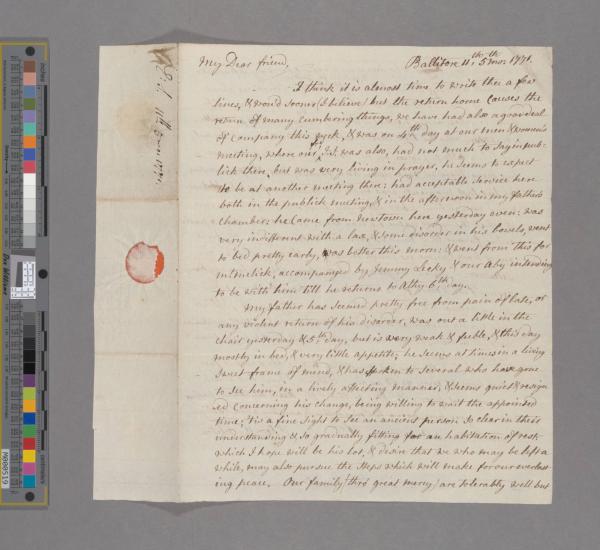 My Dear friend,
Ballitore 11th, 5th mo: 1771.
I think it is almost time to write thee a few
lines, & would sooner (I believe) but the return home causes the
return of many cumbering things, we have had also a good deal
of company this week, & was on 4th day at our men & women's
meeting, where our fr. J:S. was also, had not much to say in pub-
lick there, but was very living in prayer, he seems to expect
to be at another meeting there: had acceptable service here
both in the publick meeting, & in the afternoon in my father's
chamber: he came from Newtown here yesterday even: was
very indifferent with a lax, & some disorder in his bowels, went
to bed pretty early, was better this morn: & went from this for
accompanied by Jemmy Lecky & our Aby intending
to be with him till he returns to Athy 6th day.
My father has seemed pretty free from pain of late, or
any violent return of his disorder, was out a little in the
chair yesterday & 5th day, but is very weak & feeble, & this day
mostly in bed, & very little appetite; he seems at times in a living
sweet frame of mind, & has spoken to several who have gone
to see him, in a lively affecting manner, & seems quiet & resign-
ed concerning his change, being willing to wait the appointed
time; 'tis a fine sight to see an ancient person so clear in their
understanding & so gradually fitting for an habitation of rest
which I hope will be his lot, & desire that we who may be left a
while, may also pursue the steps which will make for our everlast-
ing peace. Our family (thro' great mercy) are tolerably well but
M000519